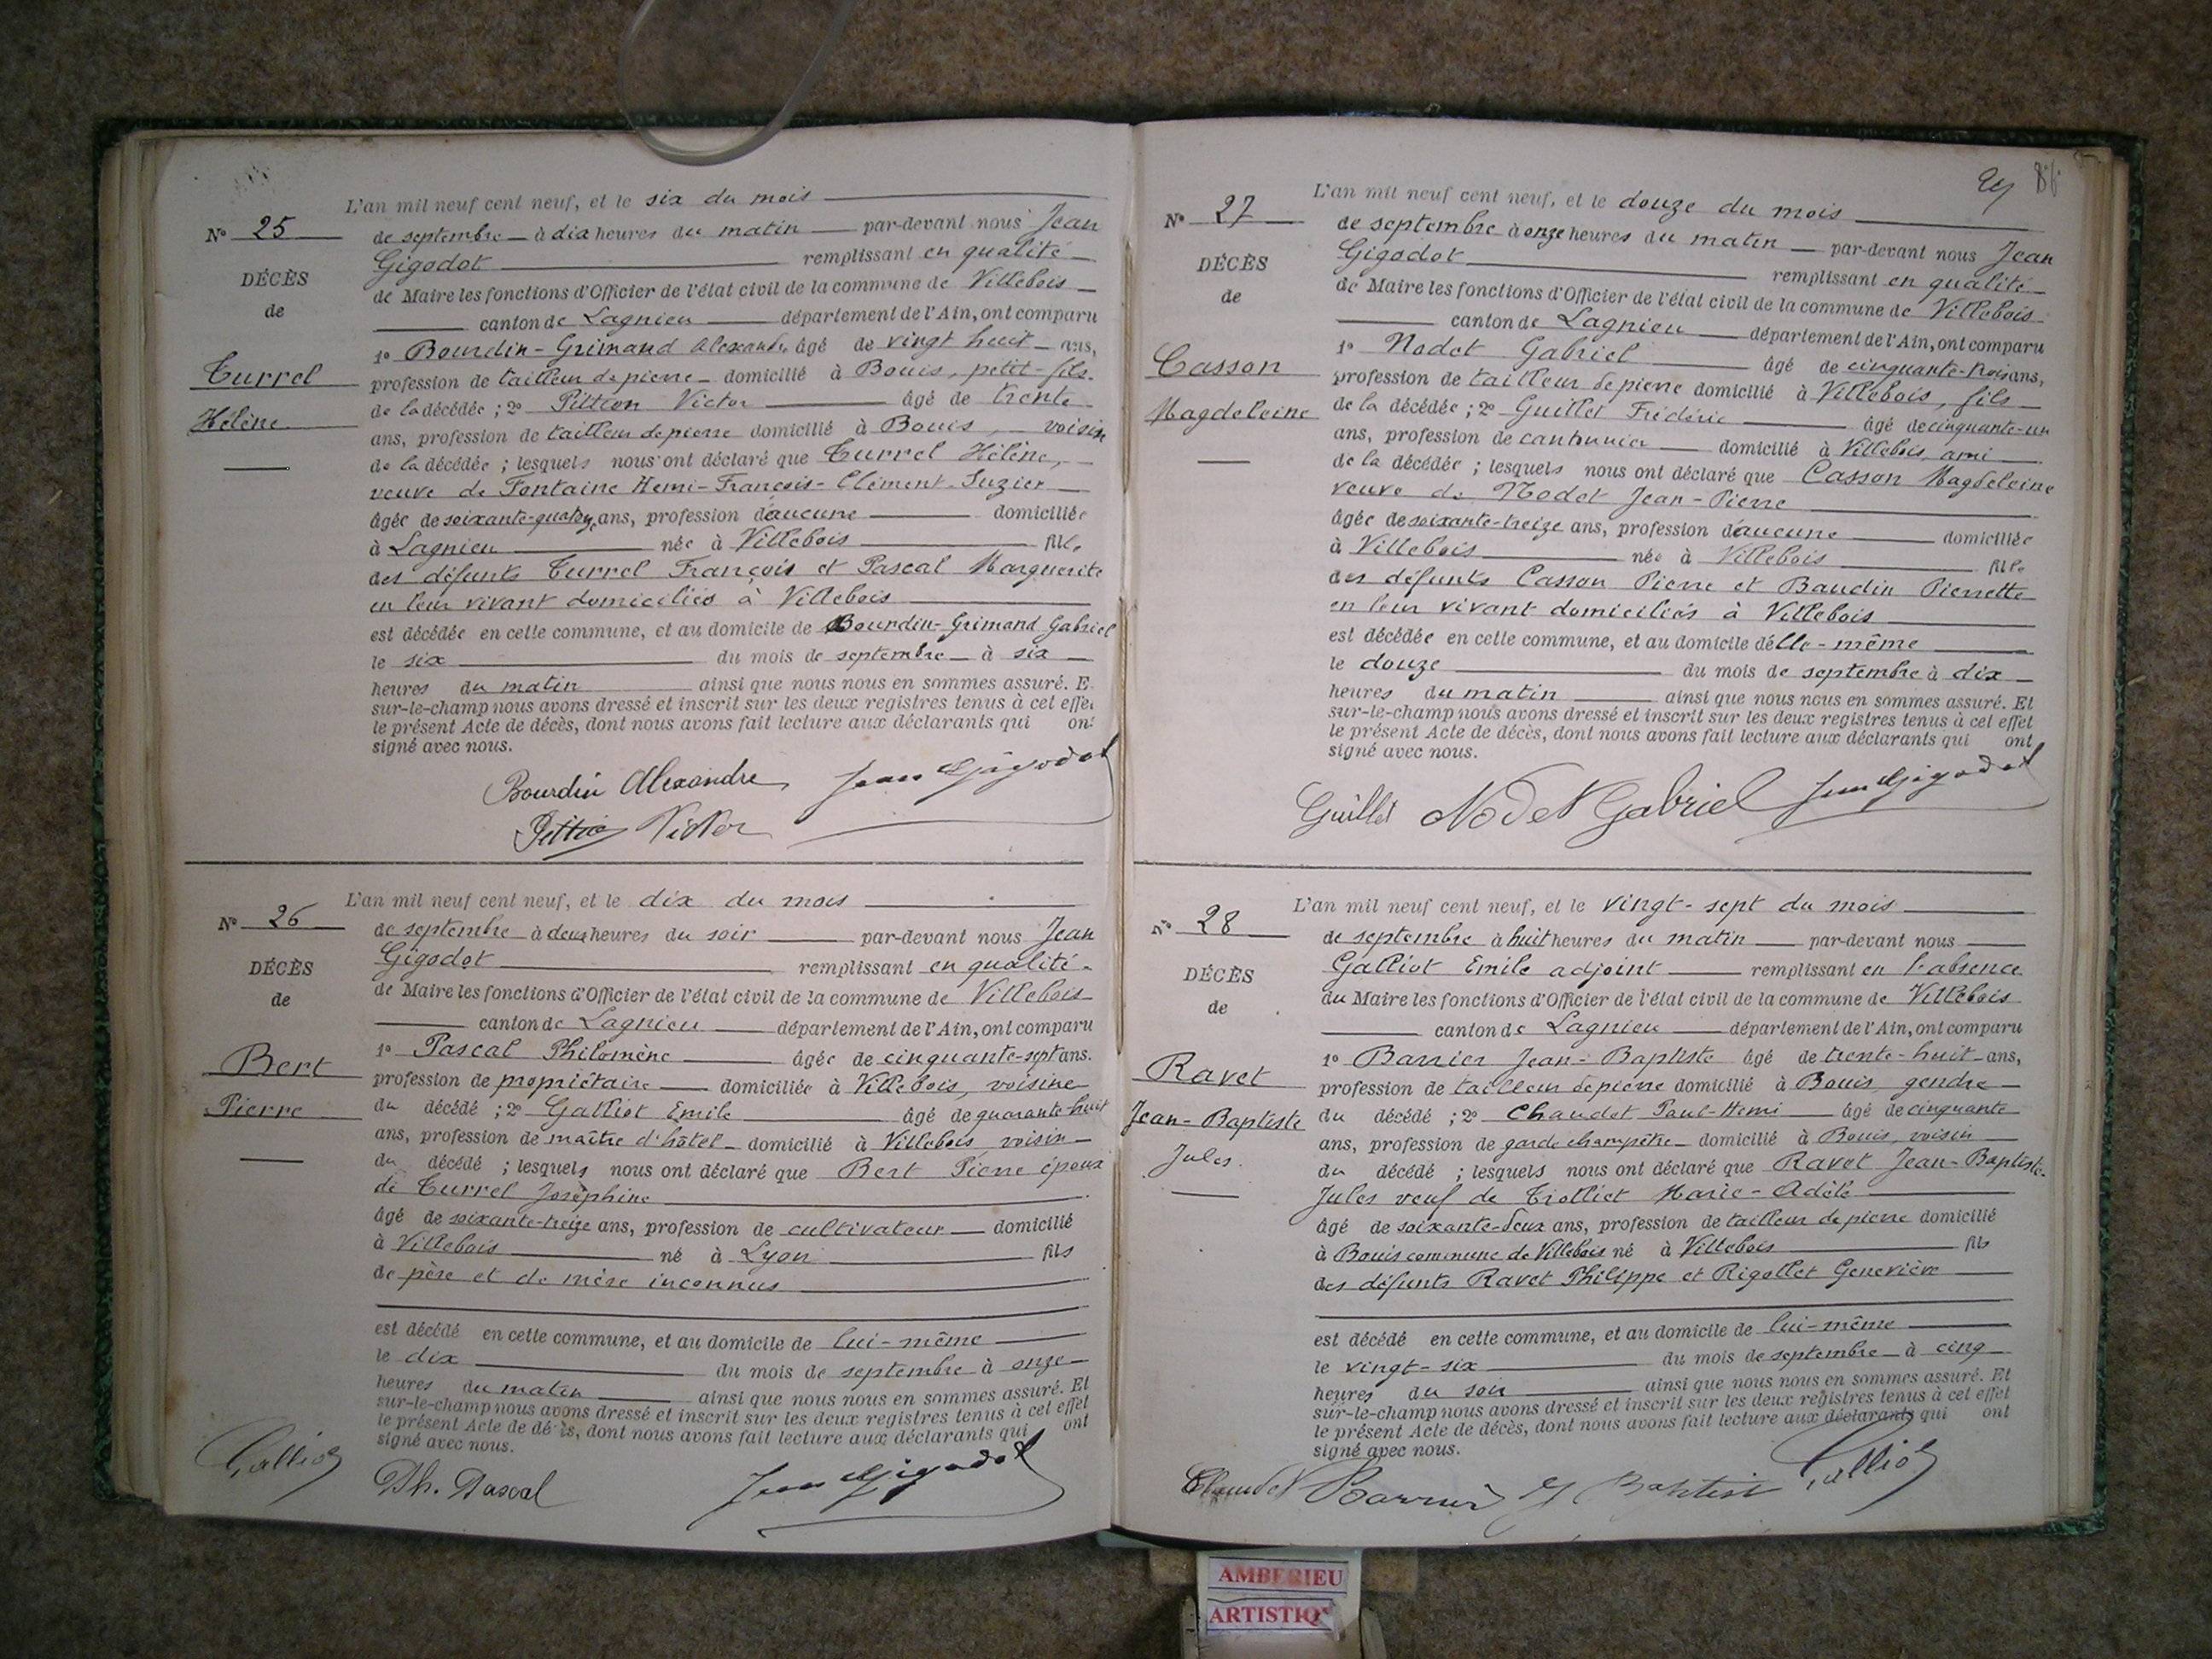 L'an mil neuf cent neuf, et le six du mois
N° 25
de septembre à dix heures du matin par-devant nous Jean
Gigodot remplissant en qualité
DÉCÈS
de Maire les fonctions d'Officier de l'état civil de la commune de Villebois
de
canton de Lagnieu département de l'Ain, ont comparu
1° Bourdin-Grimaud Alexandre âgé de vingt huit ans,
Turrel
profession de tailleur de pierre domicilié à Bouis, petit-fils
de la décédée ; 2° Pittion Victor âgé de trente
Hélène
ans, profession de tailleur de pierre domicilié à Bouis, voisin
de la décédée ; lesquels nous ont déclaré que Turrel Hélène,
veuve de Fontaine Henri-François-Clément-Suzier
âgée de soixante-quatorze ans, profession d'aucune domiciliée
à Lagnieu née à Villebois fille
des défunts Turrel François et Pascal Marguerite
en leur vivant domiciliés à Villebois
est décédée en cette commune, et au domicile de Bourdin-Grimaud Gabriel
le six du mois de septembre à six
heures du matin ainsi que nous nous en sommes assuré. E
sur-le-champ nous avons dressé et inscrit sur les deux registres tenus à cet effet
le présent Acte de décès, dont nous avons fait lecture aux déclarants qui ont
signé avec nous.
Bourdin Alexandre Jean Gigodot
Pittion Victor
L'an mil neuf cent neuf, et le dix du mois
N° 26
de septembre à deux heures du soir par-devant nous Jean
Gigodot remplissant en qualité
DÉCÈS
de Maire les fonctions d'Officier de l'état civil de la commune de Villebois
de
canton de Lagnieu département de l'Ain, ont comparu
1° Pascal Philomène âgée de cinquante-sept ans.
Bert
profession de propriétaire domiciliée à Villebois, voisine
Pierre
du décédé ; 2° Galliot Emile âgé de quarante-huit
ans, profession de maître d'hôtel domicilié à Villebois, voisin
du décédé ; lesquels nous ont déclaré que Bert Pierre époux
de Turrel Joséphine
âgé de soixante-treize ans, profession de cultivateur domicilié
à Villebois né à Lyon fils
de père et de mère inconnus
est décédé en cette commune, et au domicile de lui-même
le dix du mois de septembre à onze
heures du matin ainsi que nous nous en sommes assuré. Et
sur-le-champ nous avons dressé et inscrit sur les deux registres tenus à cet effet
le présent Acte de décès, dont nous avons fait lecture aux déclarants qui ont
signé avec nous.
Galliot Ph. Pascal Jean Gigodot
27 86
L'an mil neuf cent neuf, et le douze du mois
N° 27
de septembre à onze heures du matin par-devant nous Jean
Gigodot remplissant en qualité
DÉCÈS
de Maire les fonctions d'Officier de l'état civil de la commune de Villebois
de
canton de Lagnieu département de l'Ain, ont comparu
1° Nodet Gabriel âgé de cinquante-trois ans,
Casson
profession de tailleur de pierre domicilié à Villebois, fils
Magdeleine
de la décédée ; 2° Guillet Frédéric âgé de cinquante-un
ans, profession de cantonnier domicilié à Villebois, ami
de la décédée ; lesquels nous ont déclaré que Casson Magdeleine
veuve de Nodet Jean-Pierre
âgée de soixante-treize ans, profession d'aucune domiciliée
à Villebois née à Villebois fille
des défunts Casson Pierre et Baudin Pierrette
en leur vivant domiciliés à Villebois
est décédée en cette commune, et au domicile d'elle-même
le douze du mois de septembre à dix
heures du matin ainsi que nous nous en sommes assuré. Et
sur-le-champ nous avons dressé et inscrit sur les deux registres tenus à cet effet
le présent Acte de décès, dont nous avons fait lecture aux déclarants qui ont
signé avec nous.
Guillet Nodet Gabriel Jean Gigodot
L'an mil neuf cent neuf, et le vingt-sept du mois
N° 28
de septembre à huit heures du matin par-devant nous
Galliot Emile adjoint remplissant en l'absence
DÉCÈS
du Maire les fonctions d'Officier de l'état civil de la commune de Villebois
de
canton de Lagnieu département de l'Ain, ont comparu
1° Barrier Jean-Baptiste âgé de trente-huit ans,
Ravet
profession de tailleur de pierre domicilié à Bouis gendre
Jean-Baptiste
du décédé ; 2° Chaudet Paul-Henri âgé de cinquante
ans, profession de garde champêtre domicilié à Bouis, voisin
Jules
du décédé ; lesquels nous ont déclaré que Ravet Jean-Baptiste-
Jules veuf de Trolliet Marie-Adèle
âgé de soixante-deux ans, profession de tailleur de pierre domicilié
à Bouis commune de Villebois né à Villebois fils
des défunts Ravet Philippe et Rigollet Geneviève
est décédé en cette commune, et au domicile de lui-même
le vingt-six du mois de septembre à cinq
heures du soir ainsi que nous nous en sommes assuré. Et
sur-le-champ nous avons dressé et inscrit sur les deux registres tenus à cet effet
le présent Acte de décès, dont nous avons fait lecture aux déclarants qui ont
signé avec nous.
Chaudet Barrier J Baptiste Galliot
AMBERIEU
ARTISTIQ